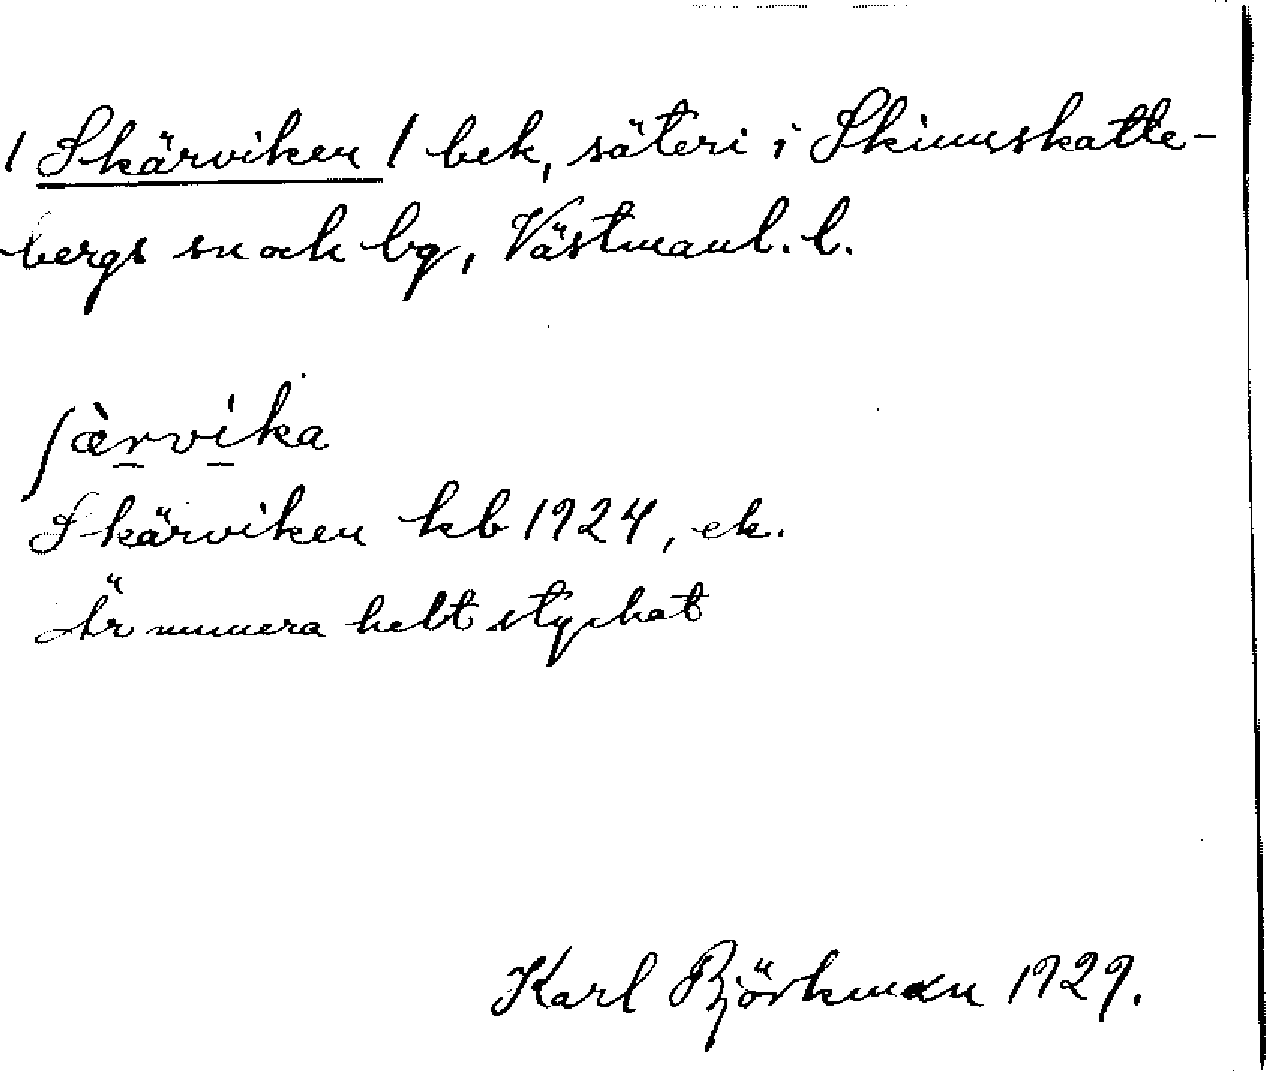 / Skärviken / bek, säteri i Skinnskatte-
bergs sn och bg, Västmanl. l.
ʃæ̀rvi̍ka
Skärviken kb 1924, ek.
Är numera helt styckat
Karl Björkman 1929.